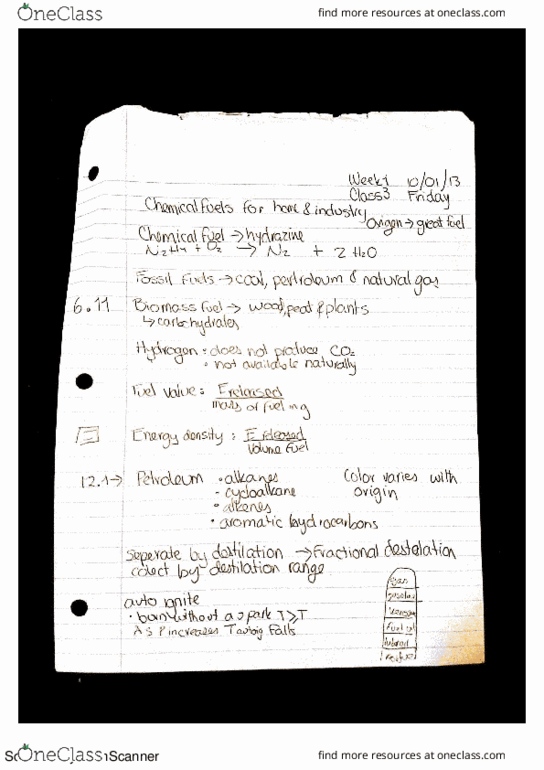 OneClass find more resources at oneclass.com
Week 1 10/01/13
Class 3 Friday
Chemical fuels for home & industry
Oxigen → great fuel
Chemical fuel → hydrazine
N2H4 + O2 → N2 + 2 H2O
Fossil fuels → coal, pertroleum & natural gas
6.11 Biomass fuel → wood, peat & plants
↳ carbohydrates
Hydrogen : does not produce CO2
• not available naturally
Fuel value : E released
mass of fuel in g
Energy density : E released
Volume fuel
12.1 → Petroleum • alkanes Color varies with
- cycloalkane origin
• alkenes
• aromatic hydrocarbons
Seperate by distilation → Fractional destelation
colect by destilation range
gas
auto ignite
• burn without a spark T>T
As P increases T autoig falls
Fuel oil
residue
OneClass Scanner find more resources at oneclass.com